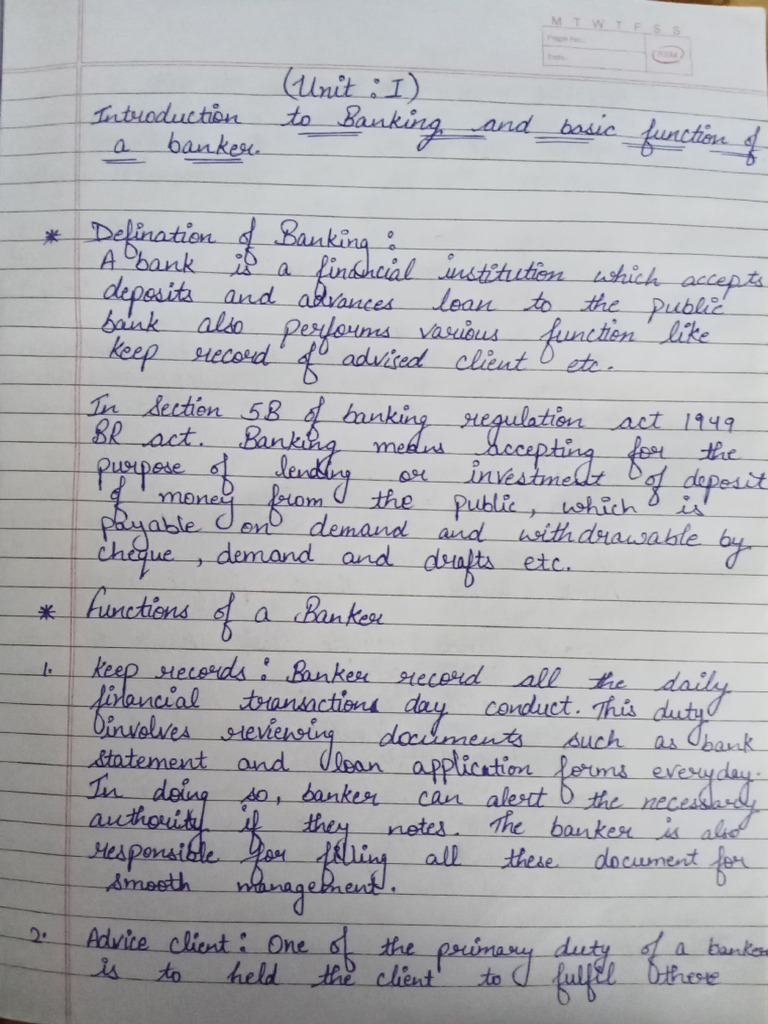 M T W T F S S
Page No.:
Date:
(Unit : I)
Introduction to Banking and basic function of
a banker.
* Defination of Banking :
A bank is a financial institution which accepts
deposits and advances loan to the public
bank also performs various function like
keep record of advised client etc.
In Section 5B of banking regulation act 1949
BR act. Banking means accepting for the
purpose of lending or investment of deposit
of money from the public, which is
payable on demand and withdrawable by
cheque, demand and drafts etc.
* Functions of a Banker
1. Keep records : Banker record all the daily
financial transactions day conduct. This duty
involves reviewing documents such as bank
statement and loan application forms everyday.
In doing so, banker can alert the necessary
authority if they notes. The banker is also
responsible for filling all these document for
smooth management.
2. Advice client : One of the primary duty of a banker
is to held the client to fulfil there